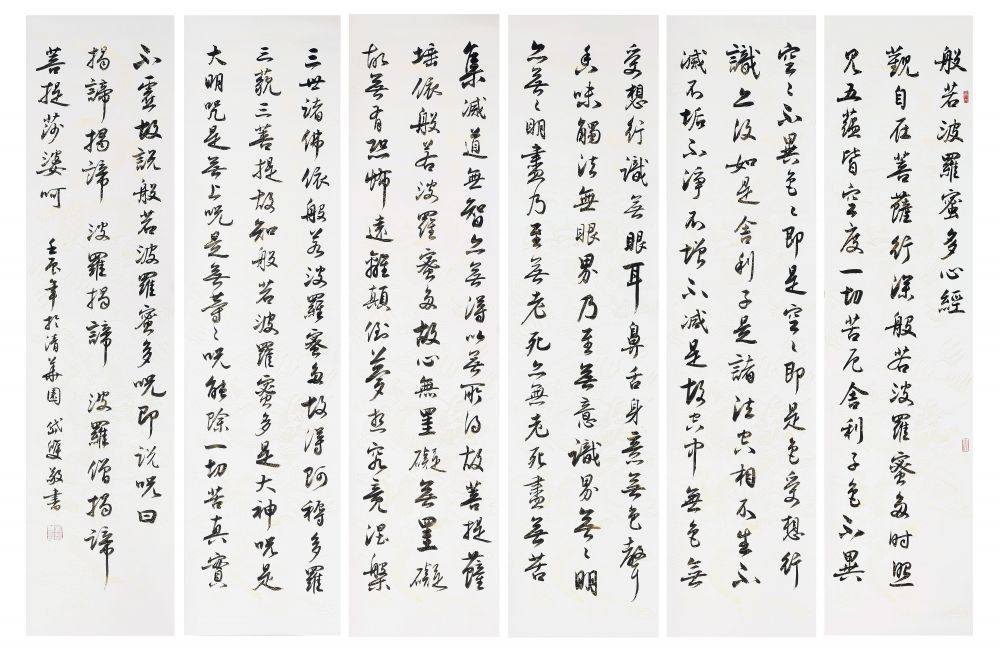 般若波羅蜜多心經
觀自在菩薩行深般若波羅蜜多时照
見五蕴皆空度一切苦厄舍利子色不異
空〻不異色〻即是空〻即是色受想行
識亦復如是舍利子是諸法空相不生不
滅不垢不淨不增不减是故空中無色無
受想行識無眼耳鼻舌身意無色聲
香味觸法無眼界乃至無意識界無〻明
亦無〻明盡乃至無老死亦無老死盡無苦
集滅道無智亦無得以無所得故菩提薩
埵依般若波羅蜜多故心無罣礙無罣礙
故無有恐怖遠離顛倒夢想究竟涅槃
三世诸佛依般若波羅蜜多故得阿耨多羅
三藐三菩提故知般若波羅蜜多是大神咒是
大明咒是無上咒是無等〻咒能除一切苦真實
不虛故説般若波羅蜜多咒即说咒曰
揭諦揭諦 波羅揭諦 波羅僧揭諦
菩提莎婆呵
壬辰年於清華園 敬書